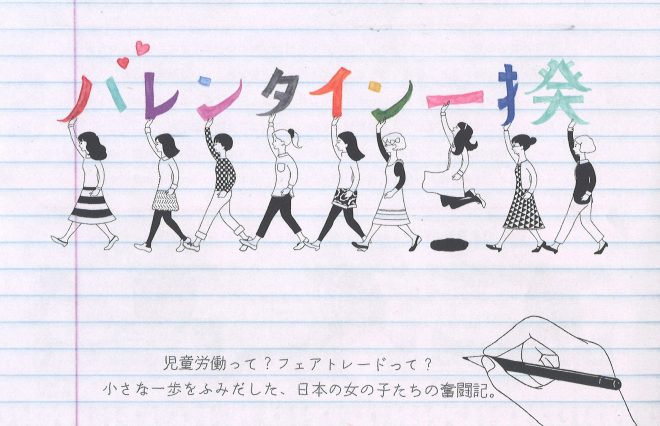 バレンタイン一揆
児童労働って？フェアトレードって？
小さな一歩をふみだした、日本の女の子たちの奮闘記。